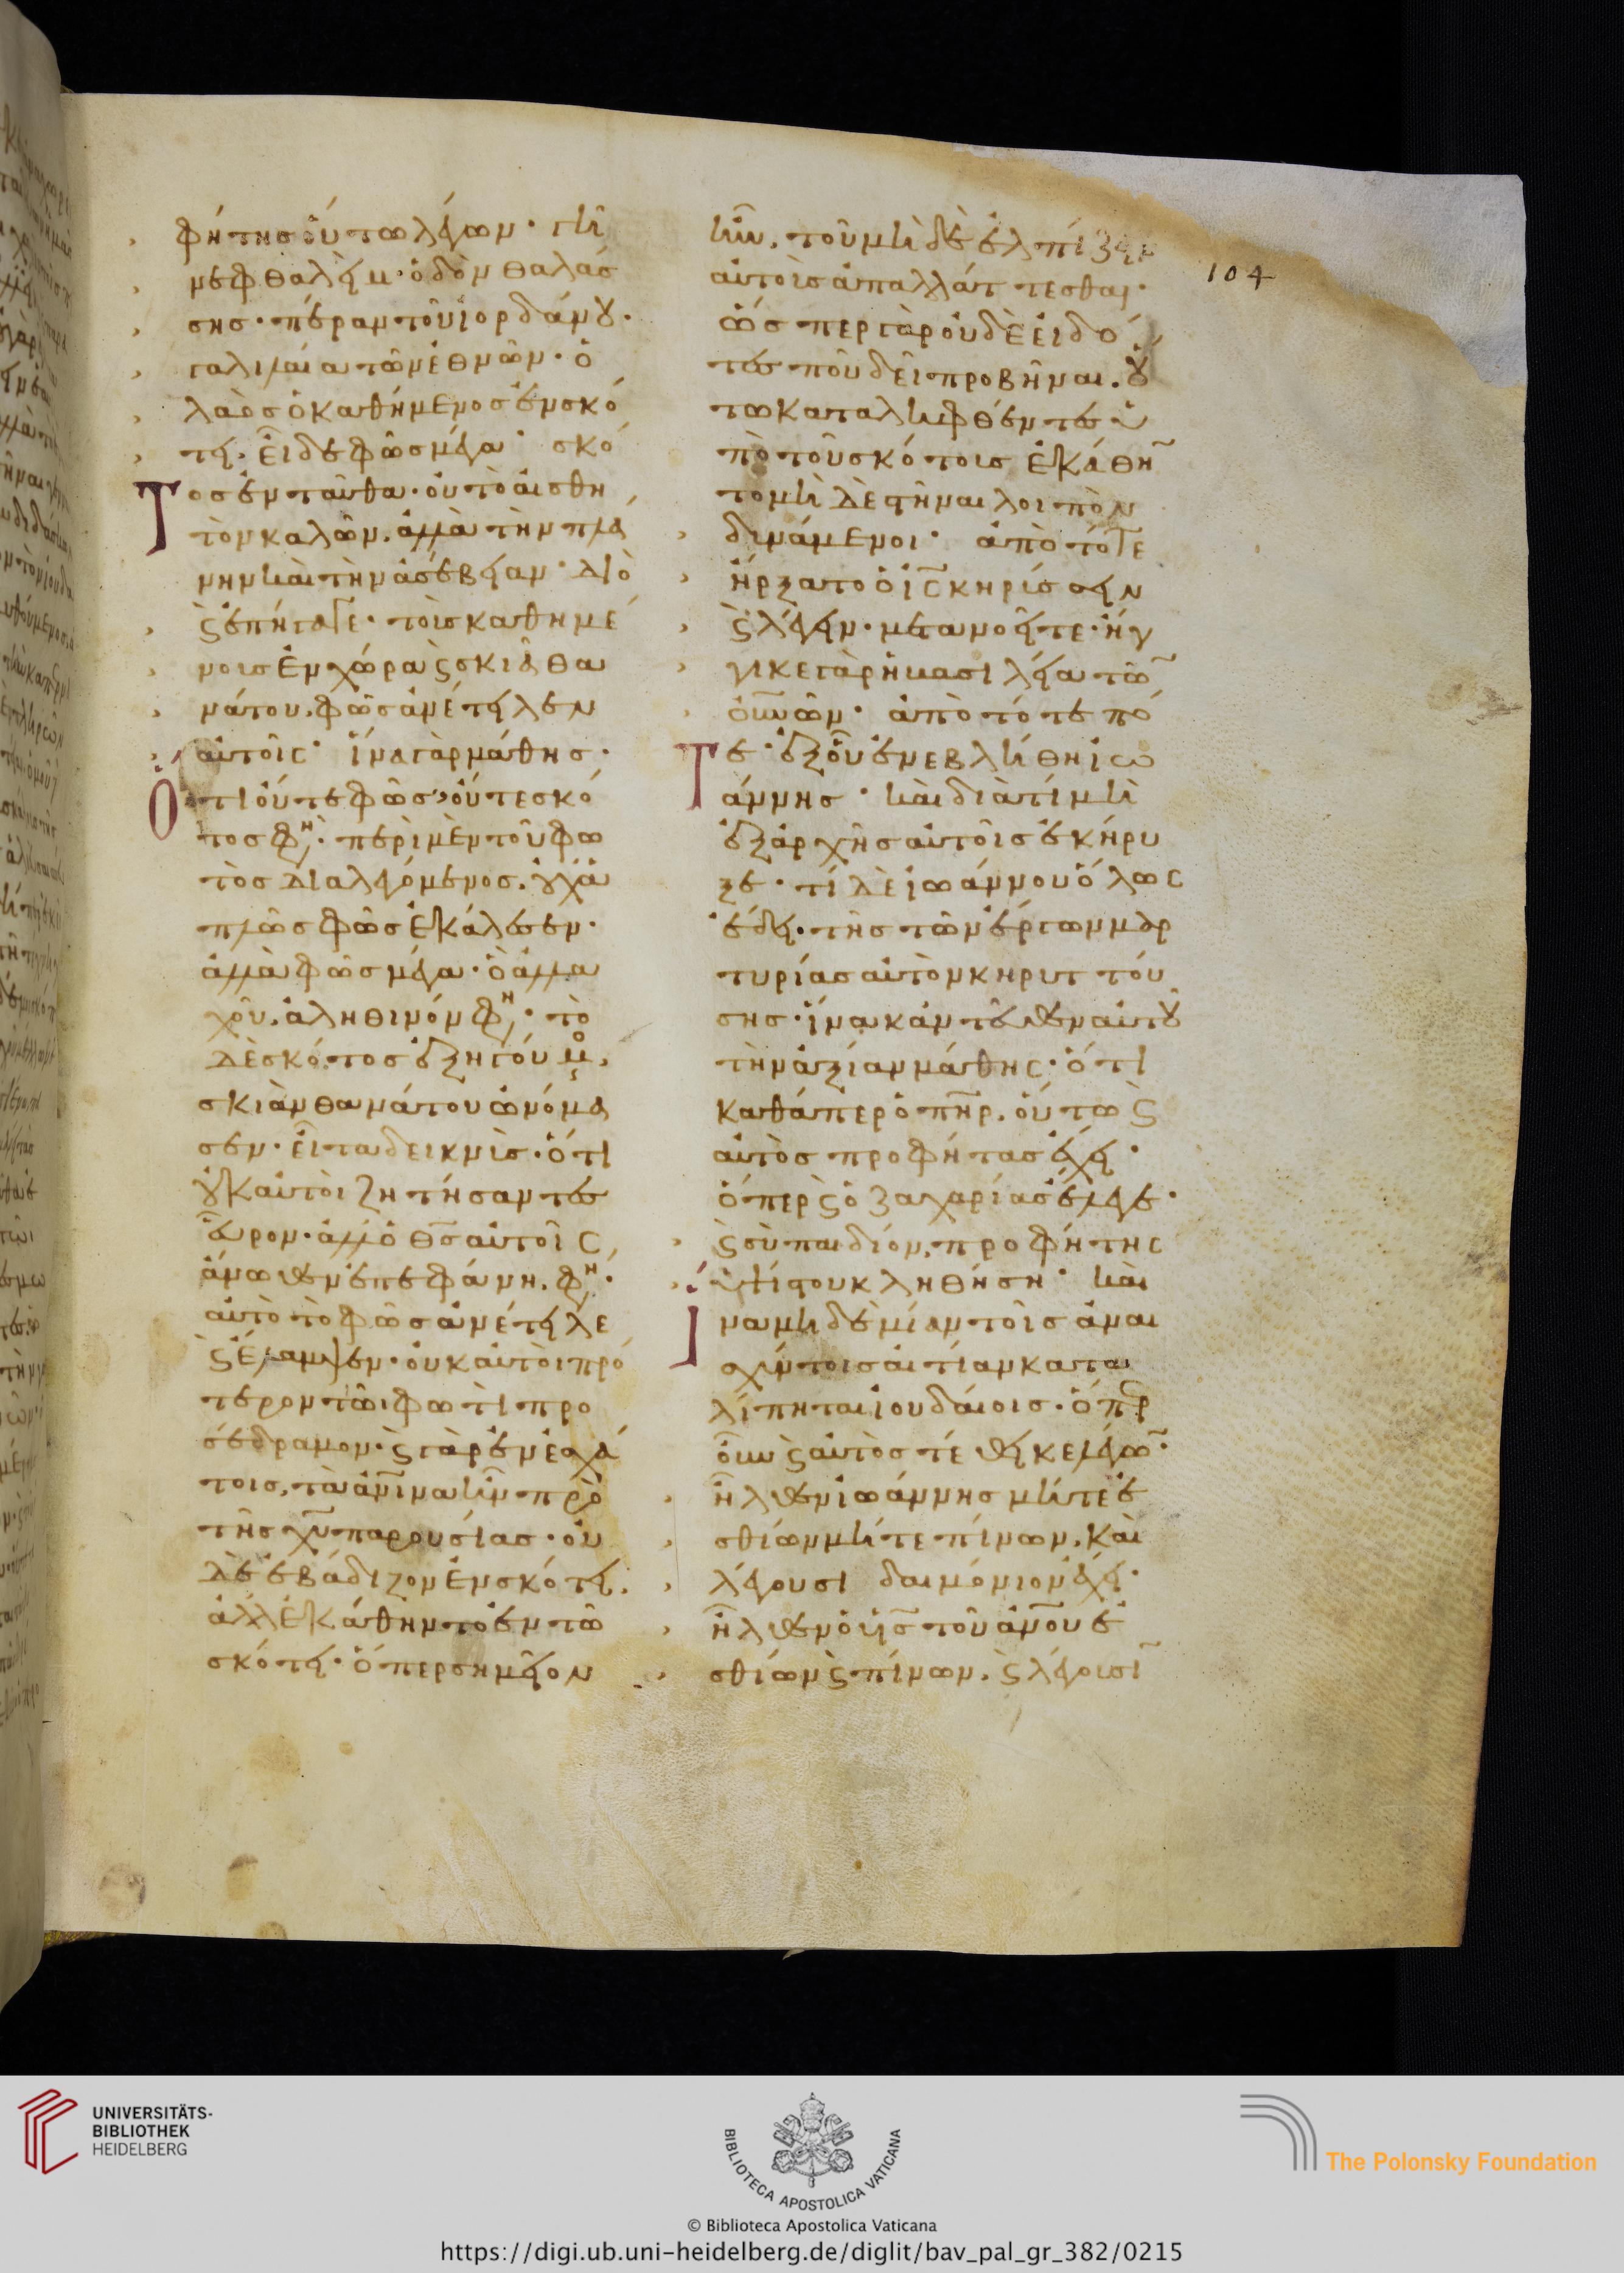 φήτης οὕτω λέγων· γῆ
νεφθαλεὶμ· ὁδὸν θαλάσ
σης· πέραν τοῦ ἰορδάνου·
γαλιλαία τῶν ἐθνῶν· ὁ
λαὸς ὁ καθήμενος ἐν σκό
τει· εἶδε φῶς μέγα· σκό
Τος ἐνταῦθα· οὐ τὸ αἰσθη
τὸν καλῶν. ἀλλὰ τὴν πλά
νην καὶ τὴν ἀσέβειαν· διὸ
ϛ ἐπήγαγε· τοῖς καθημέ
νοις ἐν χώρα ϛ σκιᾶ θα
νάτου. φῶς ἀνέτειλεν
αὐτοῖς· ἵνα γὰρ μάθης·
Ὅτι οὔτε φῶς, οὔτε σκό
τος φη· περὶ μὲν τοῦ φω
τὸς διαλεγόμενος. οὐχ ἁ
πλῶς φῶς ἐκάλεσεν·
ἀλλὰ φῶς μέγα· ὃ ἀλλα
χοῦ. ἀληθινόν φη· τὸ
δὲ σκότος ἐξηγούμενο.
σκιὰν θανάτου ὠνόμα
σεν· εἶτα δεικνὺς· ὅτι
οὐκ αὐτοὶ ζητήσαντες
εὗρον· ἀλλ ὁ θς αὐτοῖς
ἄνωθεν ἐπεφάνη. φη·
αὐτὸ τὸ φῶς ἀνέτειλε
ϛ ἔλαμψεν· οὐκ αὐτοὶ πρό
τερον τῶι φωτὶ προ
σέδραμον· ϛ γὰρ ἐν ἐσχά
τοις, τὰ ἀνινα ἦν πρὸ
τῆς χυ παρουσίας· οὐ
δὲ ἐβάδιζον ἐν σκότει.
ἀλλ ἐκάθηντο ἐν τῶ
σκότει· ὅπερ σημεῖον
ἦν. τοῦ μὴ δὲ ἐλπίζειν
αὐτοὺς ἀπαλλάττεσθαι·
ὥσπερ γὰρ οὐδὲ εἰδό
τες ποῦ δεῖ προβῆναι. οὕ
τω καταληφθέντες ὑ
πὸ τοῦ σκότους ἐκάθην
το μὴ δὲ στῆναι λοιπὸν
δυνάμενοι· ἀπὸ τότε
ἤρξατο ὁ ις κηρύσσειν
ϛ λέγειν· μετανοεῖτε· ἤγ
γικε γὰρ ἡ βασιλεία τῶν
ουνῶν· ἀπὸ τότε πό
Τε· ἐξ οὗ ἐνεβλήθη ἰω
άννης· καὶ διὰ τί μὴ
ἐξ ἀρχῆς αὐτοῖς ἐκήρυ
ξε· τί δὲ ἰωάννου ὅλως
ἔδει· τῆς τῶν ἔργων μαρ
τυρίας αὐτὸν κηρυττού
σης· ἵνα κἀντεῦθεν αὐτοῦ
τὴν ἀξίαν μάθης· ὅτι
καθάπερ ὁ πηρ. οὕτω ϛ
αὐτὸς προφήτας ἔχει·
ὅπερ ϛ ὁ ζαχαρίας ἔλεγε·
ϛ σὺ παιδίον, προφήτης
ὑψίστου κληθήση· καὶ
Ἵνα μὴ δὲ μίαν τοῖς ἀναι
σχύντοις αἰτίαν κατα
λίπη ται ἰουδαίοις· ὅπερ
οὖν ϛ αὐτὸς τέθεικε λέγων·
ἦλθεν ἰωάννης μήτε ἐ
σθίων μήτε πίνων. καὶ
λέγουσι δαιμόνιον ἔχει·
ἦλθεν ὁ υἱς τοῦ ἀνου ἐ
σθίων ϛ πίνων. ϛ λέγουσιν
104
UNIVERSITÄTS-
BIBLIOTHEK
HEIDELBERG
BIBLIOTECA APOSTOLICA VATICANA
© Biblioteca Apostolica Vaticana
The Polonsky Foundation
https://digi.ub.uni-heidelberg.de/diglit/bav_pal_gr_382/0215